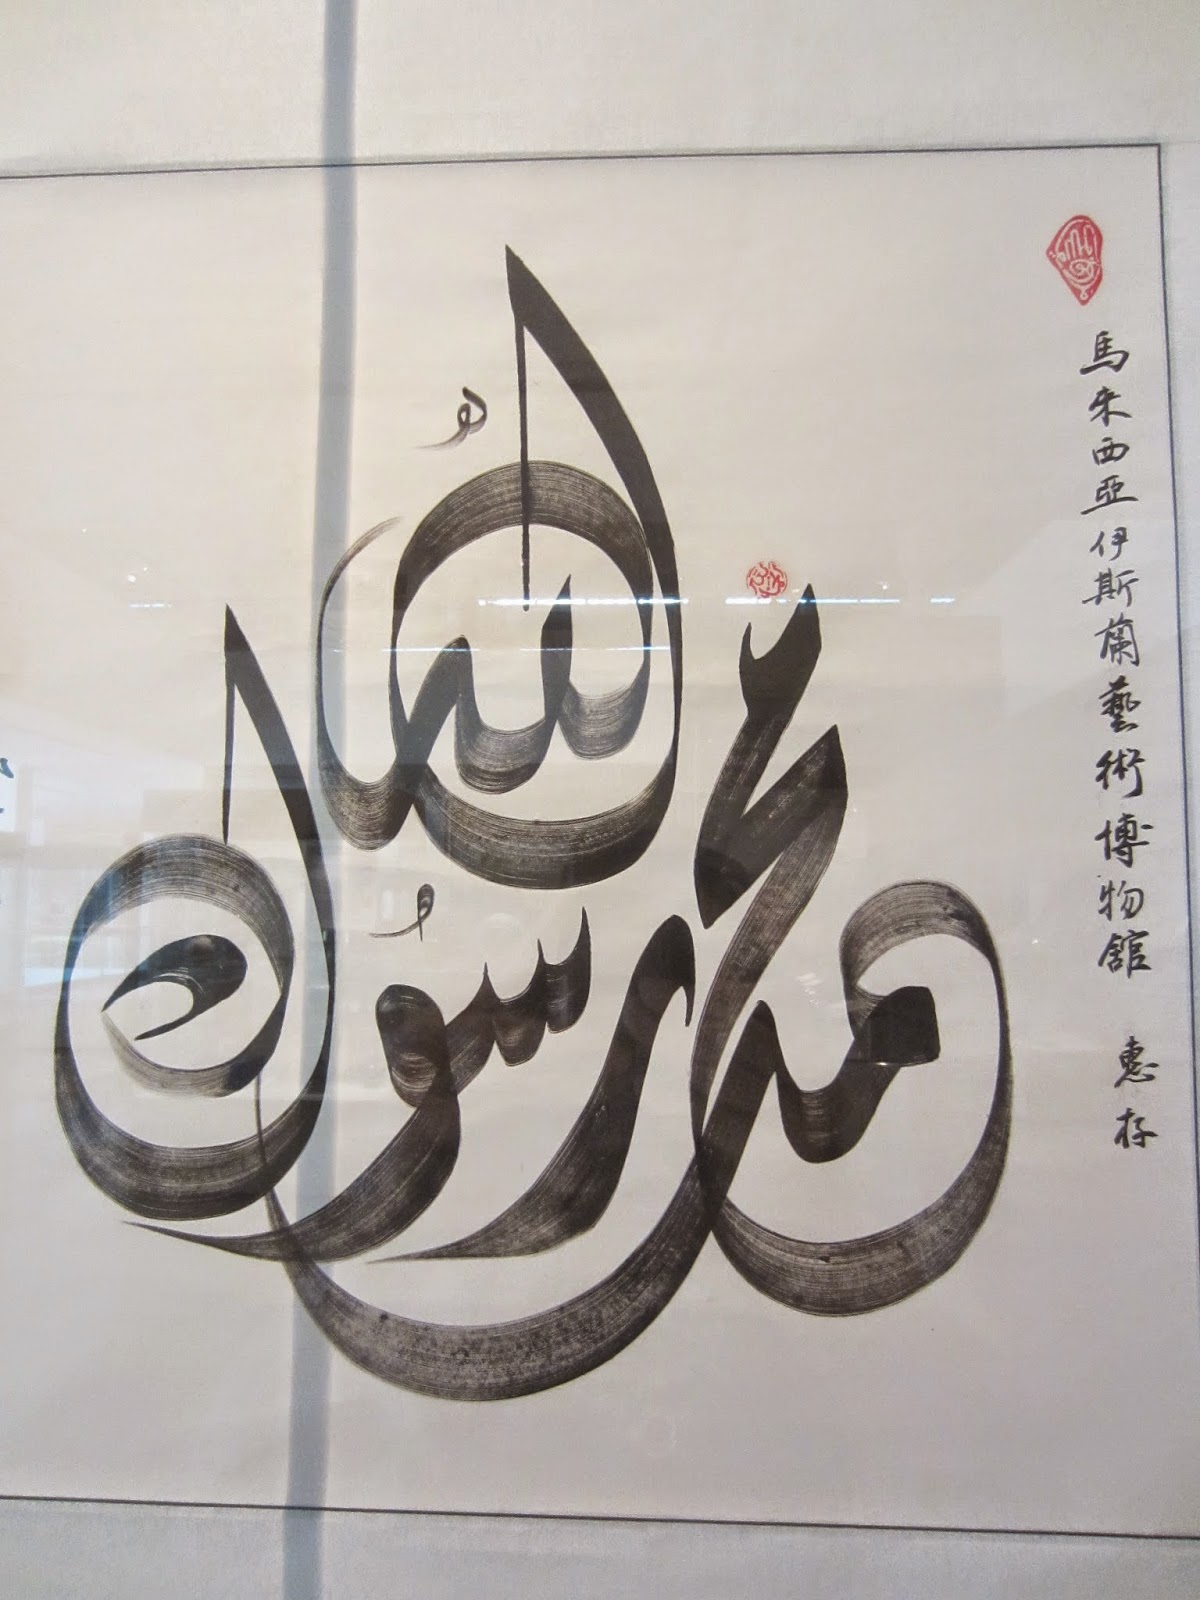 محمد رسُول اللهُ
馬来西亞伊斯蘭藝術博物館 惠存